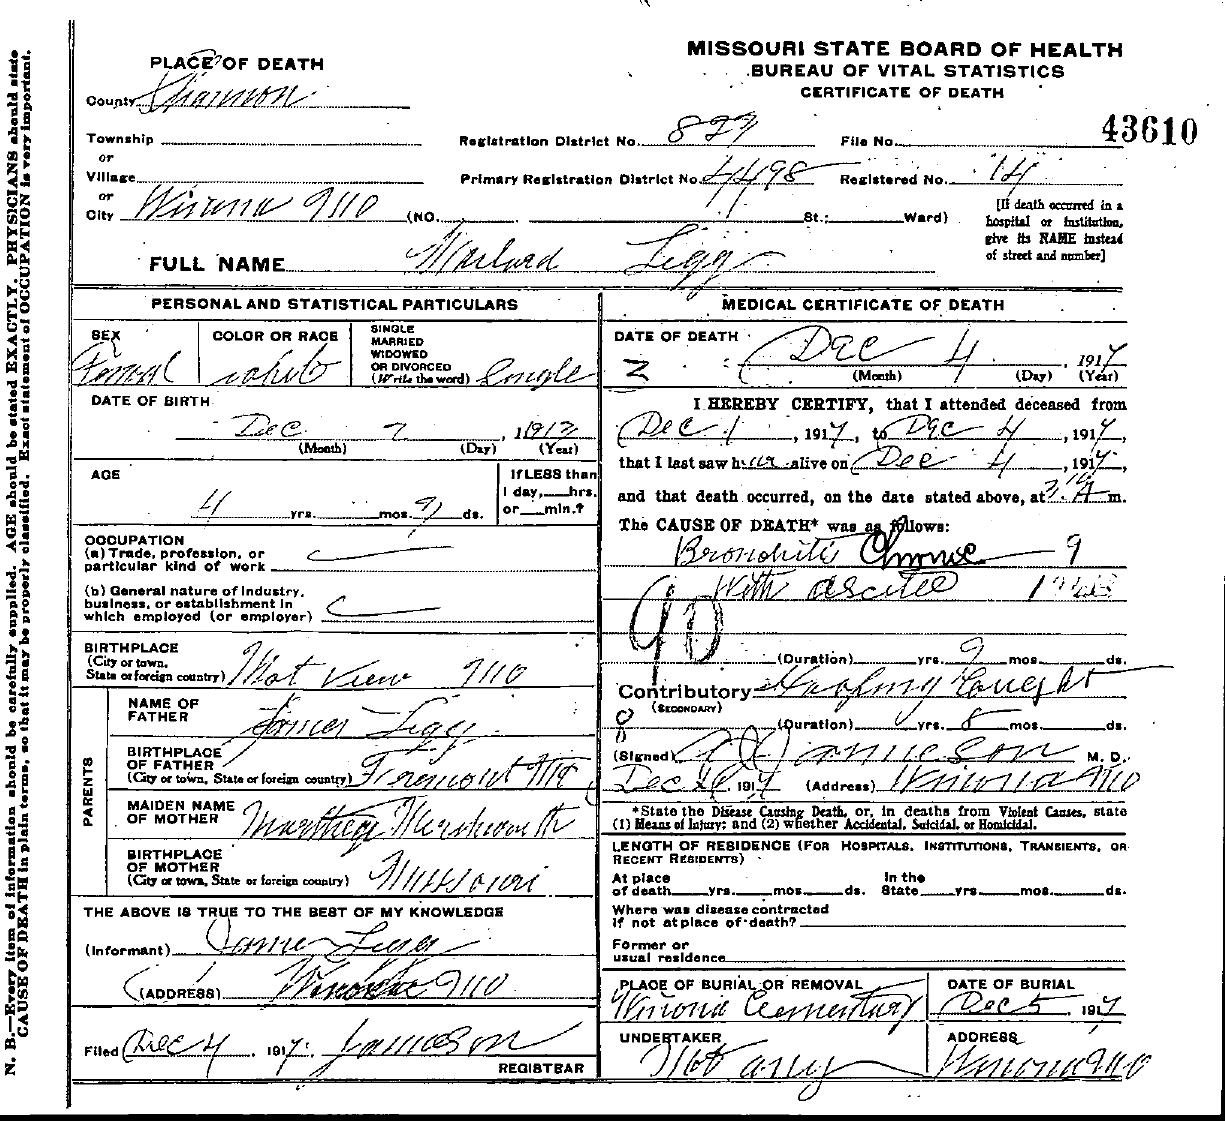 MISSOURI STATE BOARD OF HEALTH
BUREAU OF VITAL STATISTICS
CERTIFICATE OF DEATH
43610
PLACE OF DEATH
County Shannon
Township
or
Village
or
City Winona Mo (NO. St.; Ward)
Registration District No. 827 File No.
Primary Registration District No. 4498 Registered No. 14
[If death occurred in a
hospital or institution,
give its NAME instead
of street and number]
FULL NAME Legg
PERSONAL AND STATISTICAL PARTICULARS
SEX
COLOR OR RACE white
SINGLE
MARRIED
WIDOWED
OR DIVORCED
(Write the word) Single
DATE OF BIRTH
Dec 2, 1913
(Month) (Day) (Year)
AGE
4 yrs. mos. ds.
If LESS than
1 day, hrs.
or min.?
OCCUPATION
(a) Trade, profession, or
particular kind of work
(b) General nature of industry,
business, or establishment in
which employed (or employer)
BIRTHPLACE
(City or town,
State or foreign country) Mot View Mo
PARENTS
NAME OF
FATHER James Legg
BIRTHPLACE
OF FATHER
(City or town, State or foreign country) Fremont Mo
MAIDEN NAME
OF MOTHER
BIRTHPLACE
OF MOTHER
(City or town, State or foreign country) Missouri
THE ABOVE IS TRUE TO THE BEST OF MY KNOWLEDGE
(Informant) James Legg
(ADDRESS) Winona Mo
Filed Dec 4, 1917. Jamieson
REGISTRAR
MEDICAL CERTIFICATE OF DEATH
DATE OF DEATH
Dec 4 1917
(Month) (Day) (Year)
I HEREBY CERTIFY, that I attended deceased from
Dec 1, 1917, to Dec 4, 1917,
that I last saw her alive on Dec 4, 1917,
and that death occurred, on the date stated above, at m.
The CAUSE OF DEATH* was as follows:
Bronchitis Chronic 9
With ascites
90
(Duration) yrs. 9 mos. ds.
Contributory Hooping Cought
(SECONDARY)
(Duration) yrs. 8 mos. ds.
(Signed) Jamieson M. D.
Dec 1917 (Address) Winona Mo
*State the Disease Causing Death, or, in deaths from Violent Causes, state
(1) Means of Injury; and (2) whether Accidental, Suicidal, or Homicidal.
LENGTH OF RESIDENCE (FOR HOSPITALS, INSTITUTIONS, TRANSIENTS, OR
RECENT RESIDENTS)
At place
of death yrs. mos. ds.
In the
State yrs. mos. ds.
Where was disease contracted
if not at place of death?
Former or
usual residence
PLACE OF BURIAL OR REMOVAL
Winona Cementary
DATE OF BURIAL
Dec 5, 1917
UNDERTAKER
ADDRESS
Winona Mo
N. B.—Every item of information should be carefully supplied. AGE should be stated EXACTLY. PHYSICIANS should state
CAUSE OF DEATH in plain terms, so that it may be properly classified. Exact statement of OCCUPATION is very important.